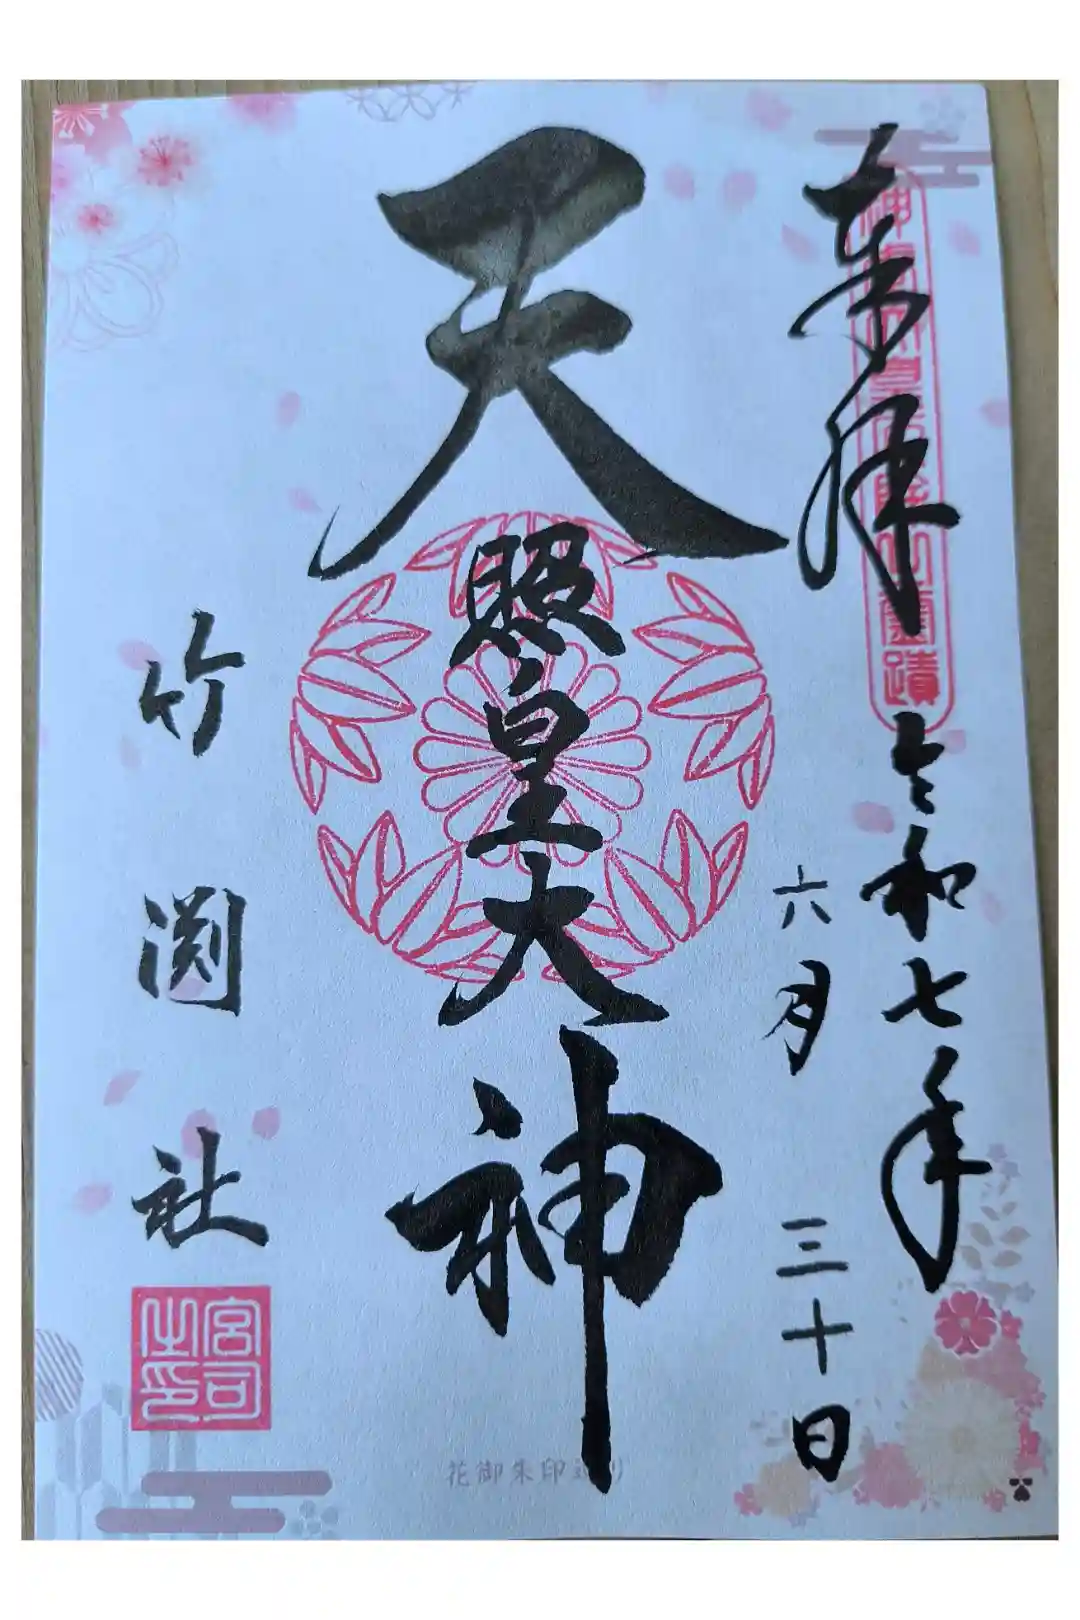 奉拝
令和七年
六月三十日
天照皇大神
竹渕社
宮司
之印
花御朱印